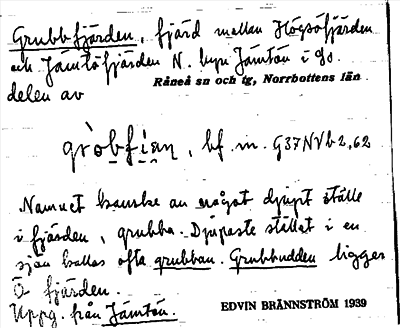 Grubbfjärden, fjärd mellan Högsöfjärden
och Jämtöfjärden N. byn Jämtön i sö.
Råneå sn och tg, Norrbottens län
delen av
gròbfi̯an, bf. m. G37NVb2,62
Namnet kanske av något djupt ställe
i fjärden, grubba. Djupaste stället i en
sjön kallas ofta grubban. Grubbudden ligger
Ö fjärden.
Uppg. från Jämtön.
EDVIN BRÄNNSTRÖM 1939